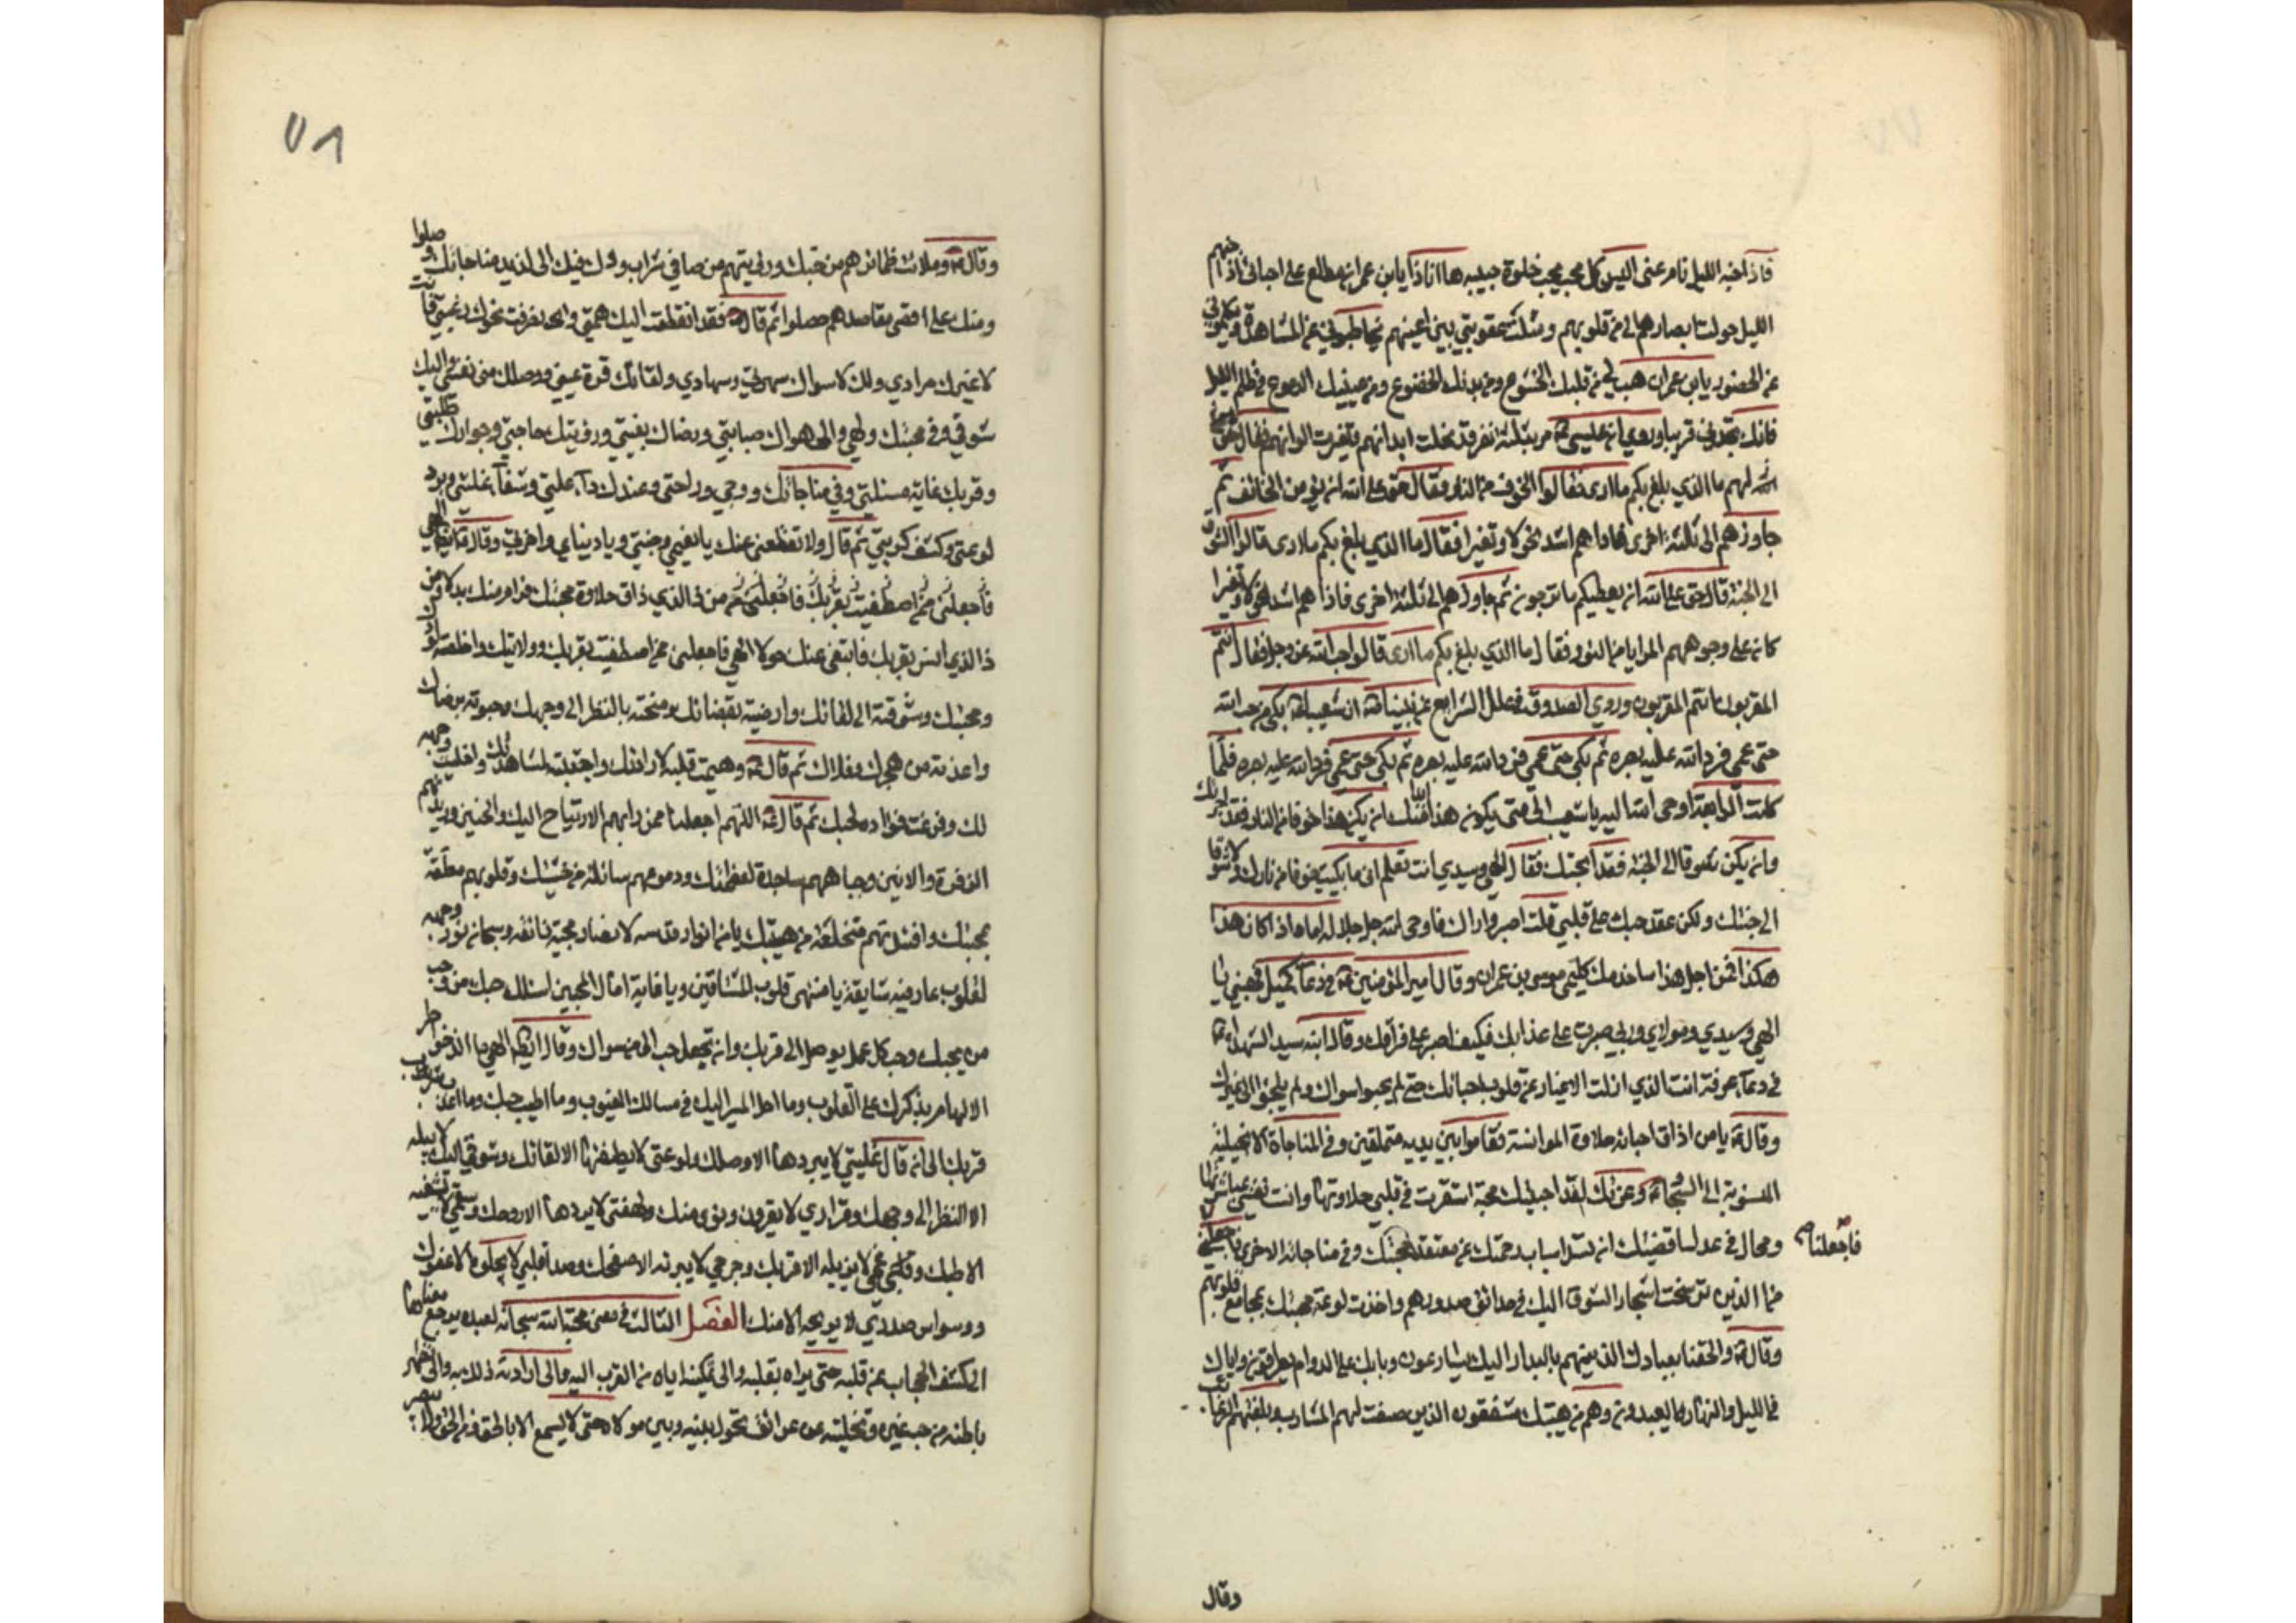 فاذا جنه الليل نام عني اليس كل محب يحب خلوة حبيبه ها انا ذا يابن عمران مطلع على احبائي اذا جنهم
الليل حولت ابصارهم الي من قلوبهم ومثلت عقوبتي بين اعينهم يخاطبوني عن المشاهدة ويكلموني
عن الحضور يابن عمران هب لي من قلبك الخشوع ومن بدنك الخضوع ومن عينيك الدموع في ظلم الليل
فانك تجدني قريبا وروي ان عيسى ع مر بثلثة نفر قد نحلت ابدانهم وتغيرت الوانهم فقال
لهم ما الذي بلغ بكم ما ارى فقالوا الخوف من النار فقال حق على الله ان يؤمن الخائف ثم
جاوزهم الى ثلثة اخرى فاذا هم اشد نحولا وتغيرا فقال ما الذي بلغ بكم ما ارى قالوا الشوق
الى الجنة قال حق على الله ان يعطيكم ما ترجون ثم جاوزهم الى ثلثة اخرى فاذا هم اشد نحولا وتغيرا
كان على وجوههم المرايا من النور فقال ما الذي بلغ بكم ما ارى قالوا حب الله عز وجل فقال انتم
المقربون انتم المقربون وروي الصدوق في علل الشرايع عن نبينا ص ان شعيبا ع بكى من حب الله
حتى عمي فرد الله عليه بصره ثم بكى حتى عمي فرد الله عليه بصره ثم بكى حتى عمي فرد الله عليه بصره فلما
كانت الرابعة اوحى الله اليه يا شعيب الى متى يكون هذا ابدا منك ان يكن هذا خوفا من النار فقد اجرتك
وان يكن شوقا الى الجنة فقد ابحتك فقال الهي وسيدي انت تعلم اني ما بكيت خوفا من نارك ولا شوقا
الى جنتك ولكن عقد حبك على قلبي فلست اصبر او اراك فاوحى الله جل جلاله اما اذا كان هذا
هكذا فمن اجل هذا ساخدمك كليمي موسى بن عمران وقال امير المؤمنين ع في دعاء كميل فهبني يا
الهي وسيدي ومولاي وربي صبرت على عذابك فكيف اصبر على فراقك وقال ابنه سيد الشهداء ع
في دعاء عرفة انت الذي ازلت الاغيار عن قلوب احبائك حتى لم يحبوا سواك ولم يلجئوا الى غيرك
وقال ع يا من اذاق احباءه حلاوة الموانسة فقاموا بين يديه متملقين وفي المناجاة الانجيلية
المنسوبة الى السجاد ع وعزتك لقد احببتك محبة استقرت في قلبي حلاوتها وانست نفسي ببشارتها
ومحال في عدل اقضيتك ان تسد اسباب رحمتك عن معتقدي محبتك وفي مناجاته الاخرى فاجعلني
فاجعلنا
من الذين ترسخت اشجار الشوق اليك في حدائق صدورهم واخذت لوعة محبتك بمجامع قلوبهم
وقال ع والحقنا بعبادك الذين هم بالبدار اليك يسارعون وبابك على الدوام يطرقون واياك
في الليل والنهار يعبدون وهم من هيبتك مشفقون الذين صفيت لهم المشارب وبلغتهم الرغائب
وقال
٧٨
وقال ع وملات ضمائرهم من حبك ورويتهم من صافي شراب ودك فبك الى لذيذ مناجاتك وصلوا
ومنك على اقصى مقاصدهم حصلوا ثم قال ع فقد انقطعت اليك همتي وانصرفت نحوك رغبتي فانت
لا غيرك مرادي ولك لا سواك سهري وسهادي ولقاؤك قرة عيني ووصلك منى نفسي واليك
شوقي وفي محبتك ولهي والى هواك صبابتي ورضاك بغيتي ورؤيتك حاجتي وجوارك طلبتي
وقربك غاية مسئلتي وفي مناجاتك روحي وراحتي وعندك دواء علتي وشفاء غلتي وبرد
لوعتي وكشف كربتي ثم قال ولا تقطعني عنك يا نعيمي وجنتي ويا دنياي واخرتي وقال ع الهي
من ذا الذي ذاق حلاوة محبتك فرام منك بدلا ومن
ذا الذي انس بقربك فابتغى عنك حولا الهي فاجعلني ممن اصطفيته لقربك وولايتك واخلصته لودك
ومحبتك وشوقته الى لقائك وارضيته بقضائك ومنحته بالنظر الى وجهك وحبوته برضاك
واعذته من هجرك وقلاك ثم قال ع وهيمت قلبه لارادتك واجتبيته لمشاهدتك واخليت وجهه
لك وفرغت فؤاده لحبك ثم قال ع اللهم اجعلنا ممن دابهم الارتياح اليك والحنين ودهرهم
الزفرة والانين وجباههم ساجدة لعظمتك ودموعهم سائلة من خشيتك وقلوبهم معلقة
بمحبتك وافئدتهم منخلعة من هيبتك يا من انوار قدسه لابصار محبيه رائقة وسبحات نور وجهه
لقلوب عارفيه شايقة يا منتهى قلوب المشتاقين ويا غاية امال المحبين اسئلك حبك وحب
من يحبك وحب كل عمل يوصل الى قربك وان تجعلك احب الي من سواك وقال ايضا الهي ما الذ خواطر
الالهام بذكرك على القلوب وما احلى المسير اليك في مسالك الغيوب وما اطيب حبك وما اعذب شرب
قربك الى ان قال غلتي لا يبردها الا وصلك ولوعتي لا يطفئها الا لقاؤك وشوقي اليك لا يبله
الا النظر الى وجهك وقراري لا يقر دون دنوي منك ولهفتي لا يردها الا روحك وسقمي لا يشفيه
الا طبك وغمي لا يزيله الا قربك وجرحي لا يبرئه الا صفحك وصدا قلبي لا يجلوه الا عفوك
ووسواس صدري لا يزيحه الا منك الفصل الثالث في معنى محبة الله سبحانه لعبده يرجع معناها
الى كشف الحجاب عن قلبه حتى يراه بقلبه والى تمكينه اياه من القرب اليه والى ارادته ذلك به والى تطهير
باطنه من حب غيره وتخليته عن عوائق تحول بينه وبين مولاه حتى لا يسمع الا بالحق ومن الحق ولا يبصر